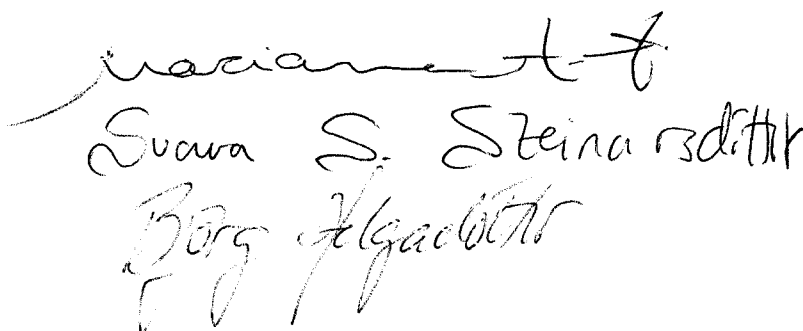 Mariana
Svava S. Steinarsdóttir
Björg Helgadóttir